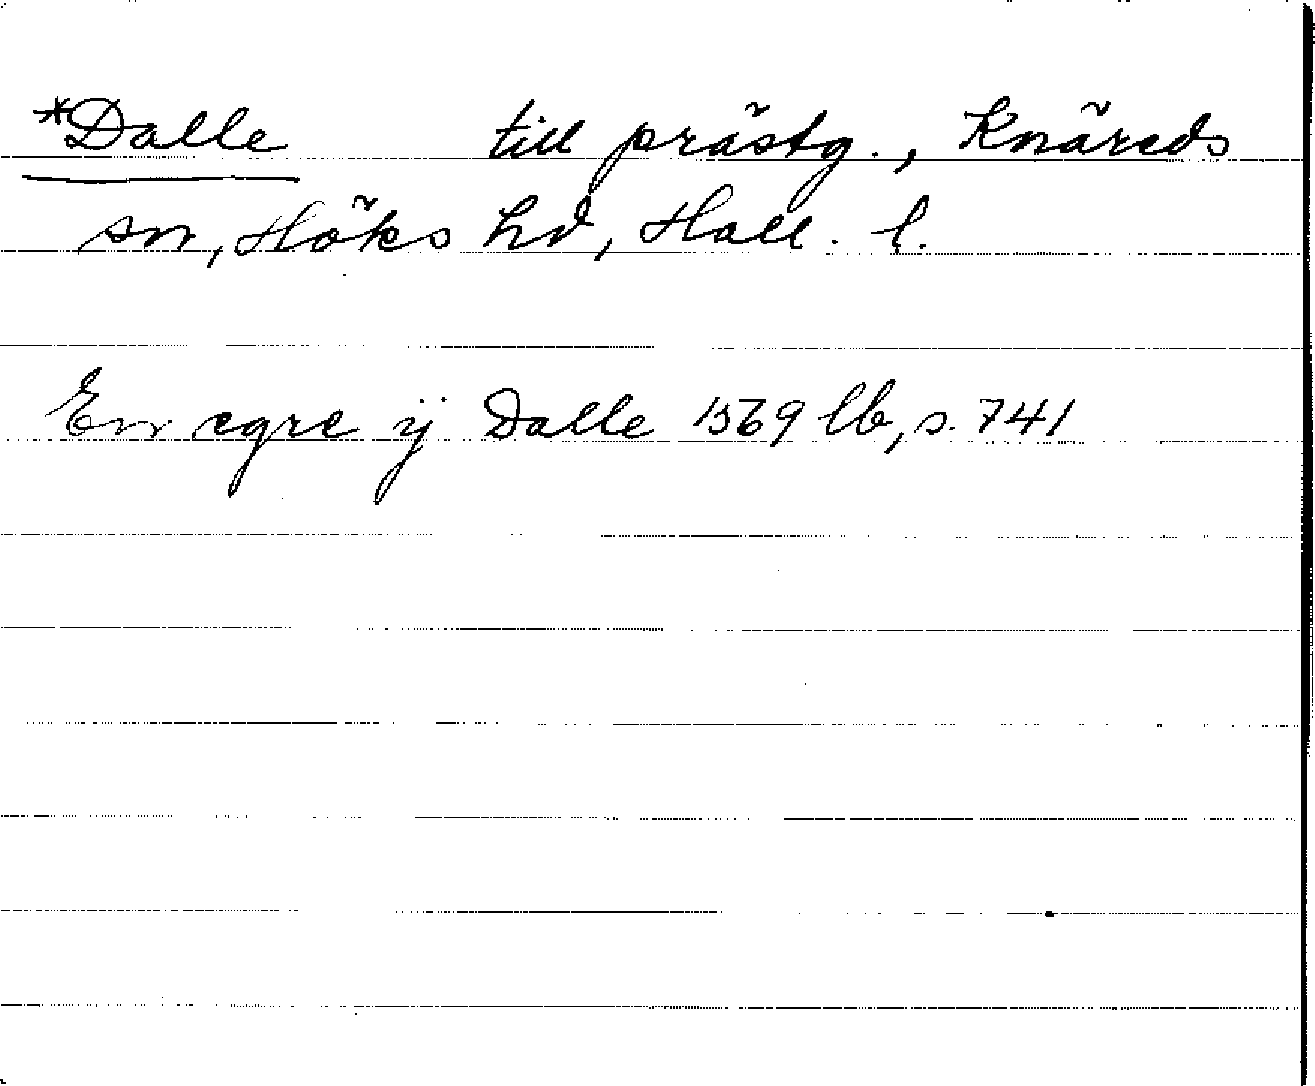 *Dalle till prästg., Knäreds
sn, Höks hd, Hall. l.
En egre ij Dalle 1569 lb, s. 741